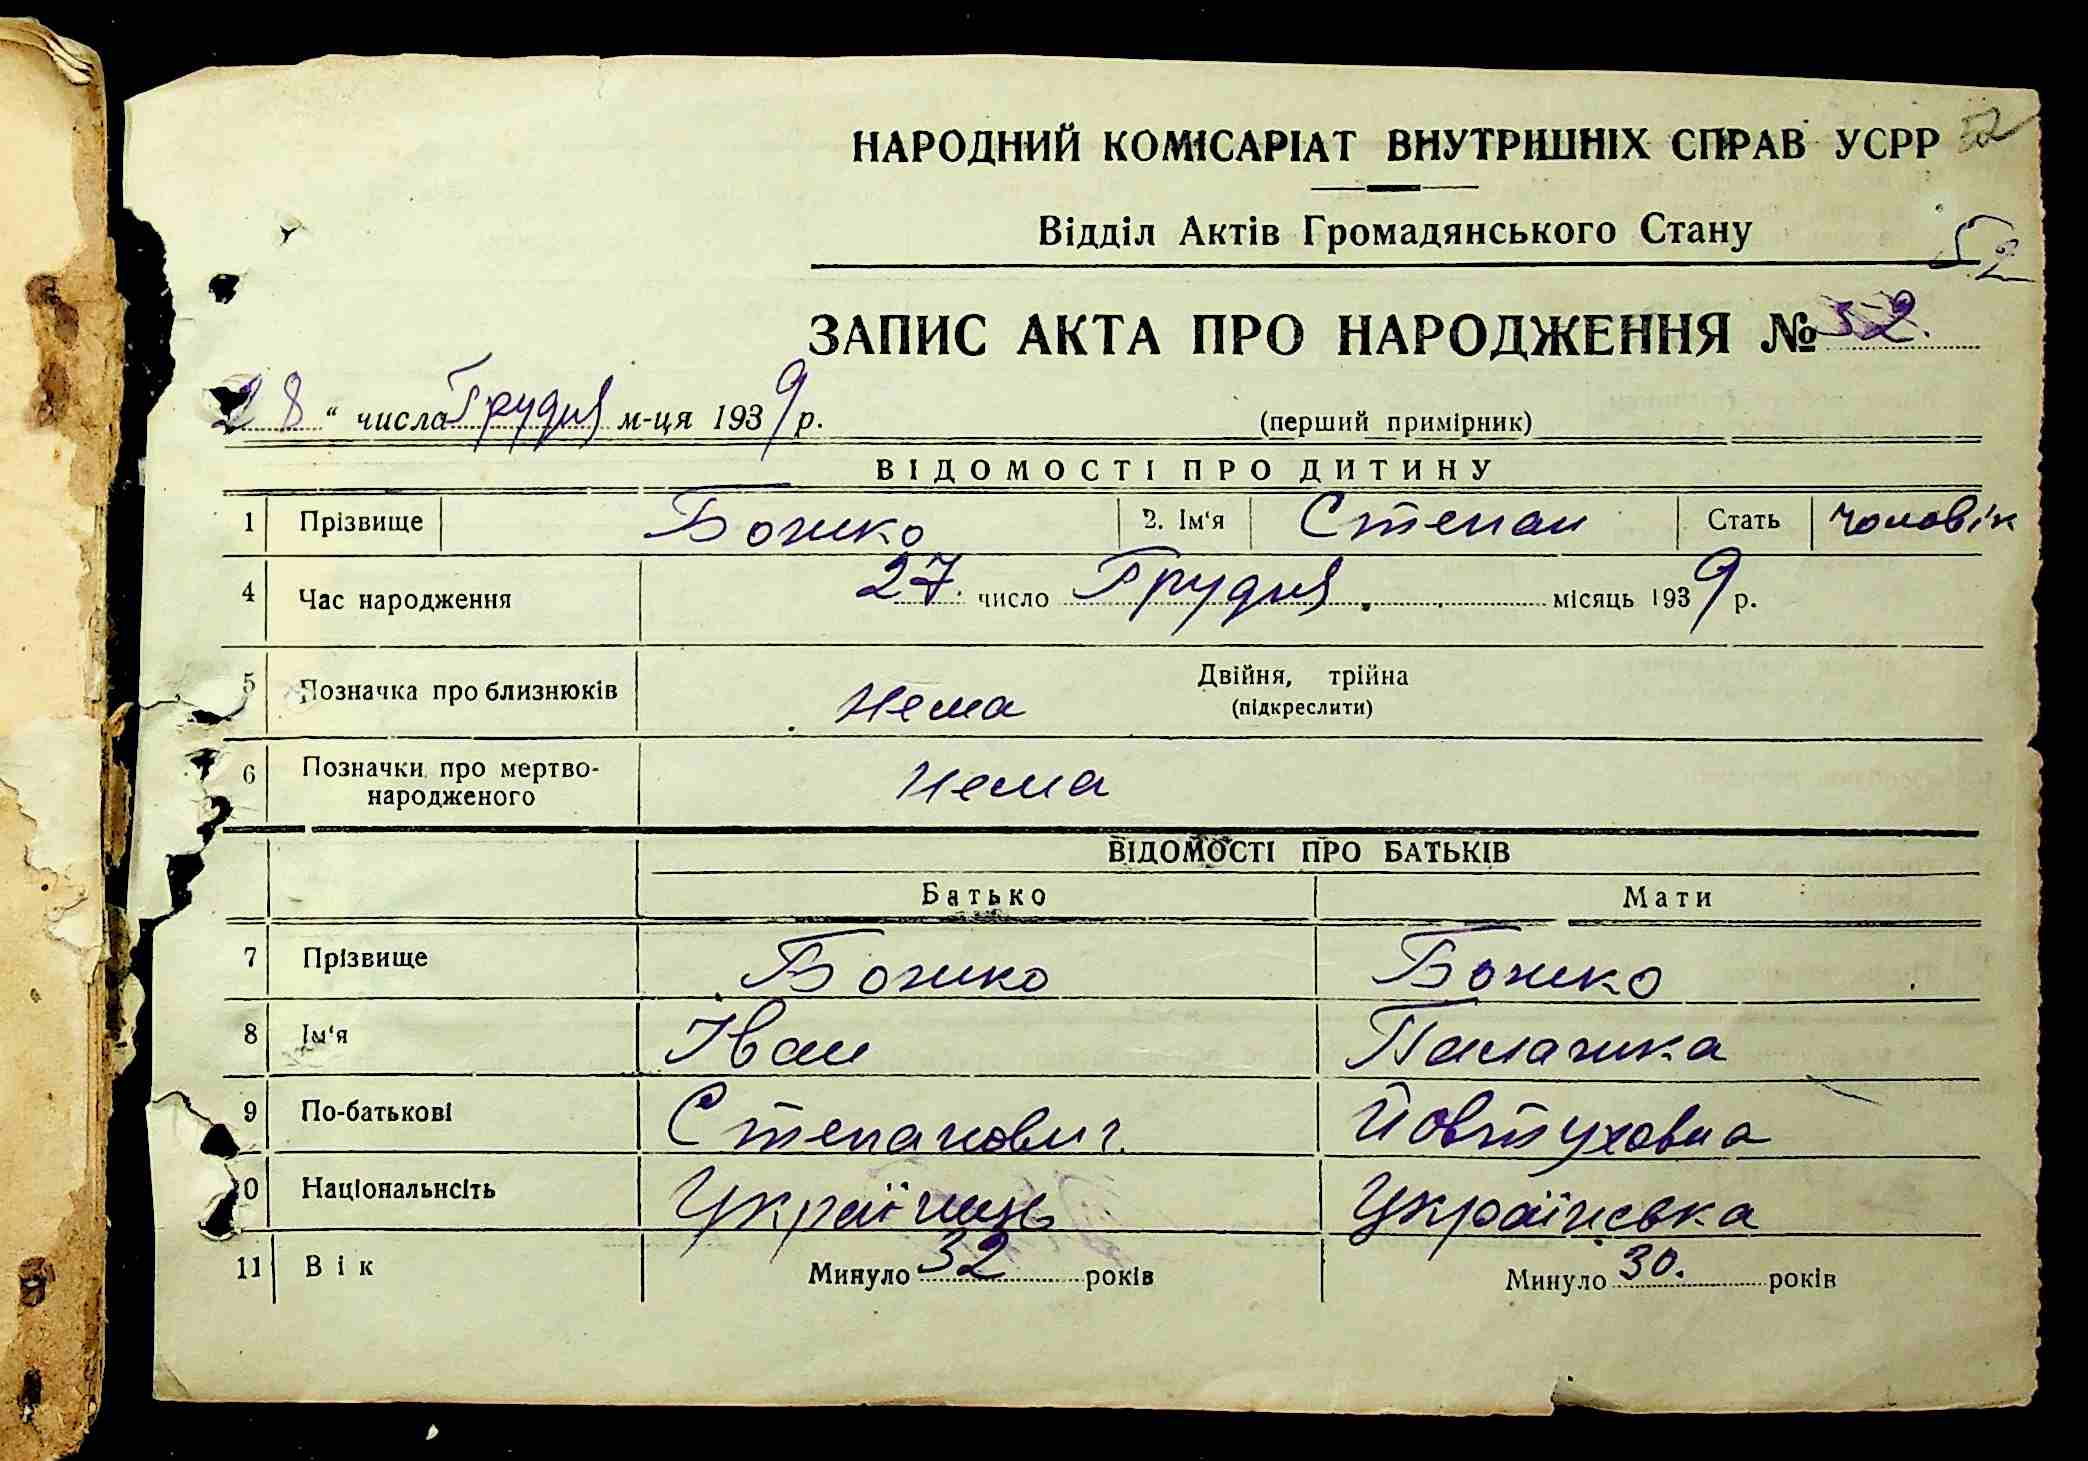 52
НАРОДНИЙ КОМІСАРІАТ ВНУТРІШНІХ СПРАВ УСРР
Відділ Актів Громадянського Стану
52
ЗАПИС АКТА ПРО НАРОДЖЕННЯ № 52.
28 " числа Грудня м-ця 1939 р.
(перший примірник)
ВІДОМОСТІ ПРО ДИТИНУ
1 Прізвище Божко 2. Ім'я Степан Стать чоловік
4 Час народження 27. число Грудня місяць 1939 р.
5 Позначка про близнюків Нема Двійня, трійна
(підкреслити)
6 Позначки про мертво-
народженого Нема
ВІДОМОСТІ ПРО БАТЬКІВ
Батько Мати
7 Прізвище Божко Божко
8 Ім'я Іван Палажка
9 По-батькові Степанович. Йовтуховна
0 Національнсіть Українець Українська
11 Вік Минуло 32 років Минуло 30. років